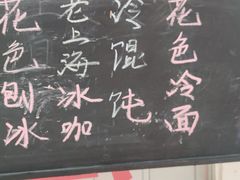 花色冷面
冷馄饨
老上海冰咖
花色刨冰